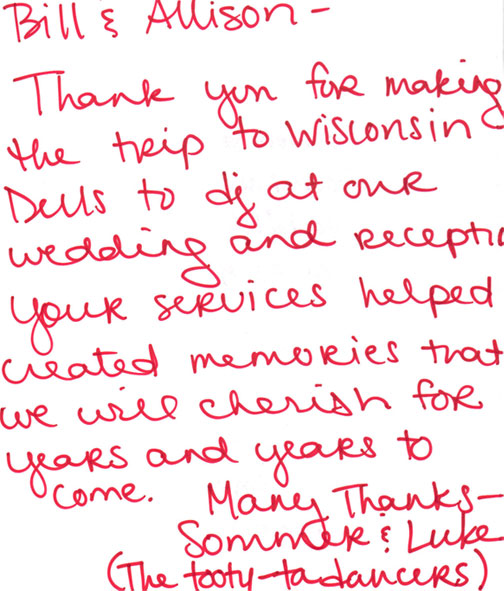 Bill & Allison -
Thank you for making
the trip to Wisconsin
Dells to dj at our
wedding and receptio
your services helped
created memories that
we will cherish for
years and years to
come. Many Thanks-
Sommer & Luke
(The tooty-ta dancers)